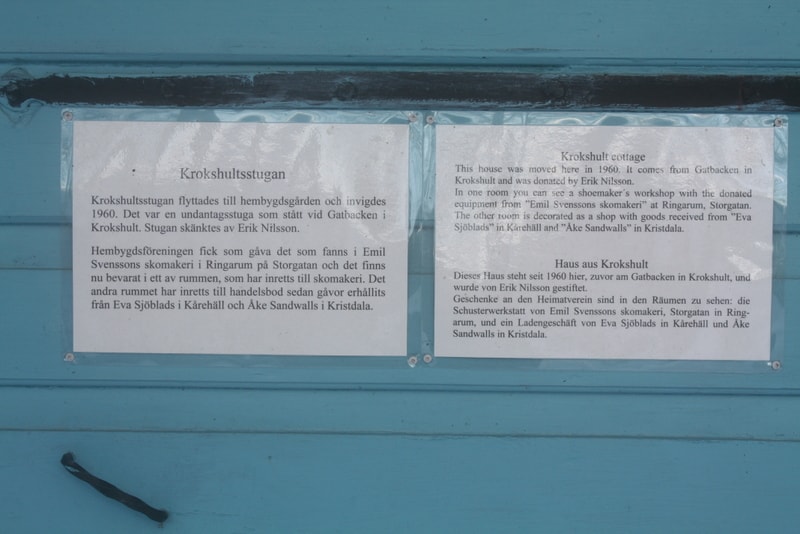 Krokshultsstugan
Krokshultsstugan flyttades till hembygdsgården och invigdes
1960. Det var en undantagsstuga som stått vid Gatbacken i
Krokshult. Stugan skänktes av Erik Nilsson.
Hembygdsföreningen fick som gåva det som fanns i Emil
Svenssons skomakeri i Ringarum på Storgatan och det finns
nu bevarat i ett av rummen, som har inretts till skomakeri. Det
andra rummet har inretts till handelsbod sedan gåvor erhållits
från Eva Sjöblads i Kårehäll och Åke Sandwalls i Kristdala.
Krokshult cottage
This house was moved here in 1960. It comes from Gatbacken in
Krokshult and was donated by Erik Nilsson.
In one room you can see a shoemaker's workshop with the donated
equipment from "Emil Svenssons skomakeri" at Ringarum, Storgatan.
The other room is decorated as a shop with goods received from "Eva
Sjöblads" in Kårehäll and "Åke Sandwalls" in Kristdala.
Haus aus Krokshult
Dieses Haus steht seit 1960 hier, zuvor am Gatbacken in Krokshult, und
wurde von Erik Nilsson gestiftet.
Geschenke an den Heimatverein sind in den Räumen zu sehen: die
Schusterwerkstatt von Emil Svenssons skomakeri, Storgatan in Ring-
arum, und ein Ladengeschäft von Eva Sjöblads in Kårehäll und Åke
Sandwalls in Kristdala.